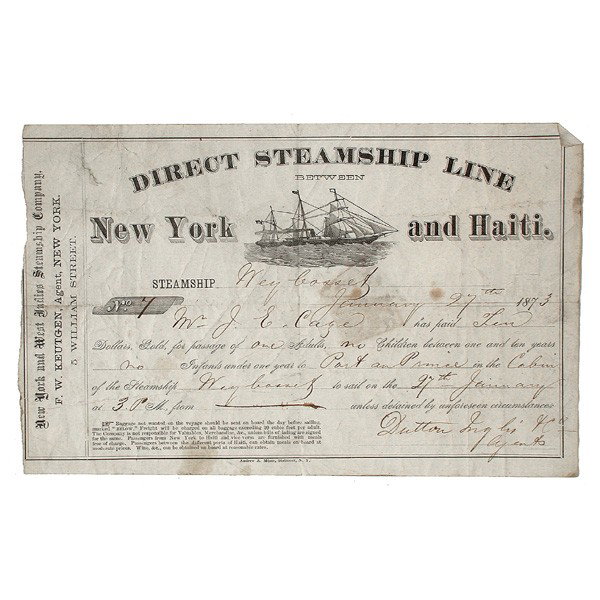 New York and West Indies Steamship Company.
F. W. KEUTGEN, Agent, NEW YORK.
5 WILLIAM STREET.
DIRECT STEAMSHIP LINE
BETWEEN
New York and Haiti.
STEAMSHIP Weybosset
No. 7 January 27th 1873
Mr J. E. Cage has paid Ten
Dollars, Gold, for passage of one Adults, no Children between one and ten years
no Infants under one year to Port au Prince in the Cabin
of the Steamship Weybosset to sail on the 27th January
at 3 P.M., from unless detained by unforeseen circumstances.
Baggage not wanted on the voyage should be sent on board the day before sailing,
marked "BELOW." Freight will be charged on all baggage exceeding 20 cubic feet per adult.
The Company is not responsible for Valuables, Merchandise, &c., unless bills of lading are signed
for the same. Passengers from New York to Haiti and vice versa are furnished with meals
free of charge. Passengers between the different ports of Haiti, can obtain meals on board at
moderate prices. Wine, &c., can be obtained on board at reasonable rates.
Dutton Inglis & Co
Agents
Stationer, N. Y.